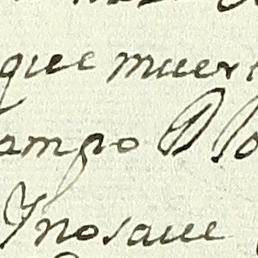 que muer
ampo D lo
Ynosaue